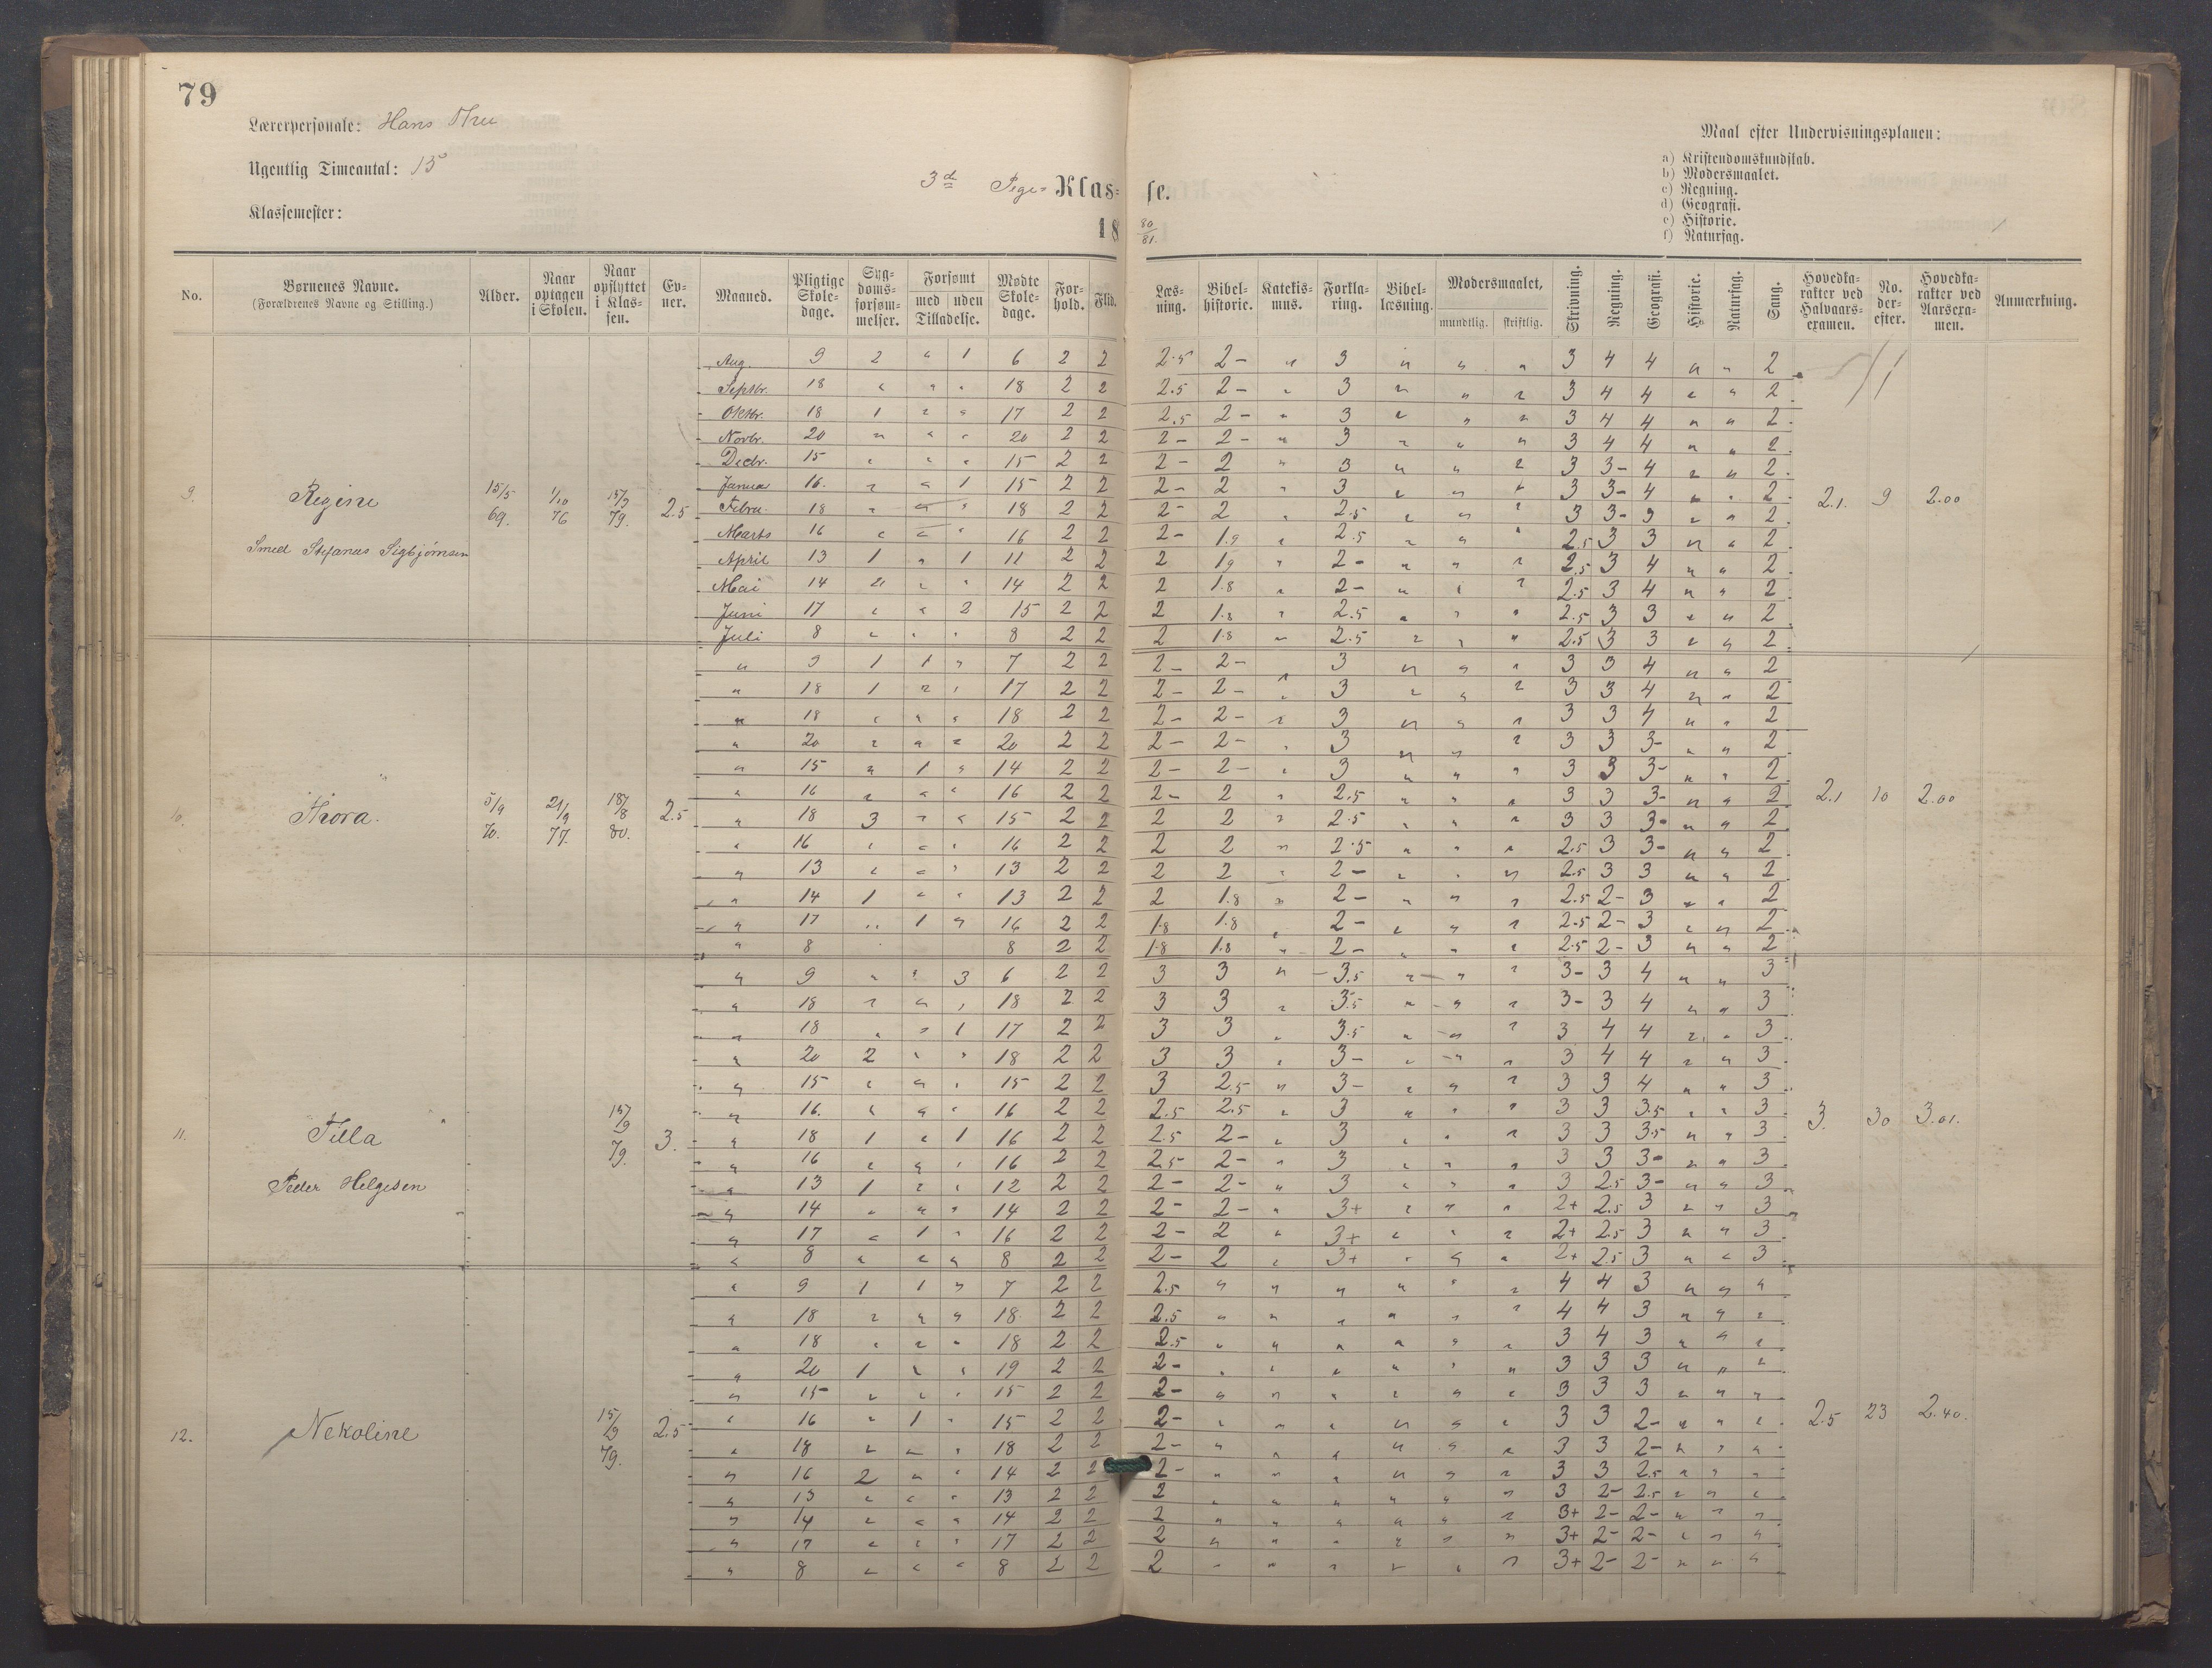 79
Lærerpersonale: Hans
Ugentlig Timeantal: 15
Klassemester:
3d Pige= Klas= se.
18 80/81.
Maal efter Undervisningsplanen:
a) Kristendomskundskab.
b) Modersmaalet.
c) Regning.
d) Geografi.
e) Historie.
f) Naturfag.
No. Børnenes Navne. (Forældrenes Navne og Stilling.) Alder. Naar optagen i Skolen. Naar opflyttet i Klas= sen. Ev= ner. Maaned. Pligtige Skole= dage. Syg= doms= forsøm= melser. Forsømt med uden Tilladelse. Mødte Skole= dage. For= hold. Flid. Læs= ning. Bibel= historie. Katekis= mus. Forkla= ring. Bibel= læsning. Modersmaalet, mundtlig. skriftlig. Skrivning. Regning. Geografi. Historie. Naturfag. Sang. Hovedka= rakter ved Halvaars= examen. No. der= efter. Hovedka= rakter ved Aarsexa= men. Anmærkning.
Aug. 9 2 " 1 6 2 2 2.5 2- " 3 " " " 3 4 4 " " 2
Septbr. 18 " " " 18 2 2 2.5 2- " 3 " " " 3 4 4 " " 2
Oktbr. 18 1 " " 17 2 2 2.5 2- " 3 " " " 3 4 4 " " 2
Novbr. 20 " " " 20 2 2 2- 2- " 3 " " " 3 4 4 " " 2
Decbr. 15 " " " 15 2 2 2- 2 " 3 " " " 3 3- 4 " " 2
Januar 16. " " 1 15 2 2 2- 2 " 3 " " " 3 3- 4 " " 2
9. Regine 15/5 69. 1/10 76 15/9 79. 2.5 2.1. 9 2.00
Febru. 18 " " " 18 2 2 2- 2 " 2.5 " " " 3 3- 3 " " 2
Smed Stefanus Sigbjørnsen
Marts 16 " " " 16 2 2 2- 1.9 " 2.5 " " " 2.5 3 3 " " 2
April 13 1 " 1 11 2 2 2 1.9 " 2- " " " 2.5 3 4 " " 2
Mai 14 " " " 14 2 2 2 1.8 " 2- " " " 2.5 3 4 " " 2
Juni 17 " " 2 15 2 2 2 1.8 " 2.5 " " " 2.5 3 3 " " 2
Juli 8 " " " 8 2 2 2 1.8 " 2.5 " " " 2.5 3 3 " " 2
" 9 1 1 " 7 2 2 2- 2- " 3 " " " 3 3 4 " " 2
" 18 1 " " 17 2 2 2- 2- " 3 " " " 3 3 4 " " 2
" 18 " " " 18 2 2 2- 2- " 3 " " " 3 3 4 " " 2
" 20 " " " 20 2 2 2- 2- " 3 " " " 3 3 3- " " 2
" 15 " 1 " 14 2 2 2- 2- " 3 " " " 3 3 3- " " 2
" 16 " " " 16 2 2 2- 2 " 2.5 " " " 3 3 3- " " 2
10. Thora. 5/9 70. 21/9 77. 18/8 80. 2.5 2.1 10 2.00
" 18 3 " " 15 2 2 2 2 " 2.5 " " " 3 3 3- " " 2
" 16 " " " 16 2 2 2 2 " 2.5 " " " 2.5 3 3- " " 2
" 13 " " " 13 2 2 2 2 " 2- " " " 2.5 3 3 " " 2
" 14 1 " " 13 2 2 2 1.8 " 2- " " " 2.5 2- 3 " " 2
" 17 " 1 " 16 2 2 1.8 1.8 " 2- " " " 2.5 2- 3 " " 2
" 8 8 2 2 1.8 1.8 " 2- " " " 2.5 2- 3 " " 2
" 9 " " 3 6 2 2 3 3 " 3.5 " " " 3- 3 4 " " 3
" 18 " " " 18 2 2 3 3 " 3.5 " " " 3- 3 4 " " 3
" 18 " " 1 17 2 2 3 3 " 3.5 " " " 3 4 4 " " 3
" 20 2 " " 18 2 2 3 3 " 3- " " " 3 4 4 " " 3
" 15 " " " 15 2 2 3 2.5 " 3- " " " 3 3 4 " " 3
" 16. " " " 16 2 2 2.5 2.5 " 3 " " " 3 3 3.5 " " 3
11. Tilla 15/9 79. 3. 3. 30 3.01.
" 18 1 " 1 16 2 2 2.5 2- " 3 " " " 3 3 3.5 " " 3
" 16 " " " 16 2 2 2.5 2- " 3 " " " 3 3 3- " " 3
Peder Helgesen
" 13 1 " " 12 2 2 2- 2- " 3 " " " 3 2.5 3- " " 3
" 14 " " " 14 2 2 2- 2- " 3+ " " " 2+ 2.5 3 " " 3
" 17 " 1 " 16 2 2 2- 2 " 3+ " " " 2+ 2.5 3 " " 3
" 8 " " " 8 2 2 2- 2 " 3+ " " " 2+ 2.5 3 " " 3
" 9 1 1 " 7 2 2 2.5 " " " " " " 4 4 3 " " "
" 18 " " " 18 2 2 2.5 " " " " " " 4 4 3 " " "
" 18 " " " 18 2 2 2.5 " " " " " " 3 4 3 " " "
" 20 1 " " 19 2 2 2- " " " " " " 3 3 3 " " "
" 15 " " " 15 2 2 2- " " " " " " 3 3 3 " " "
" 16 " 1 " 15 2 2 2- " " " " " " 3 3 2- " " "
12. Nekoline 15/9 79. 2.5 2.5 23 2.40.
" 18 " " " 18 2 2 2- " " " " " " 3 3 2- " " "
" 16 2 " " 14 2 2 2- " " " " " " 3 3 2.5 " " "
" 13 " " " 13 2 2 2 " " " " " " 3 2- 2.5 " " "
" 14 " " " 14 2 2 2 " " " " " " 3+ 2- 2- " " "
" 17 " " " 17 2 2 2 " " " " " " 3+ 2- 2- " " "
" 8 " " " 8 2 2 2 " " " " " " 3+ 2- 2- " " "